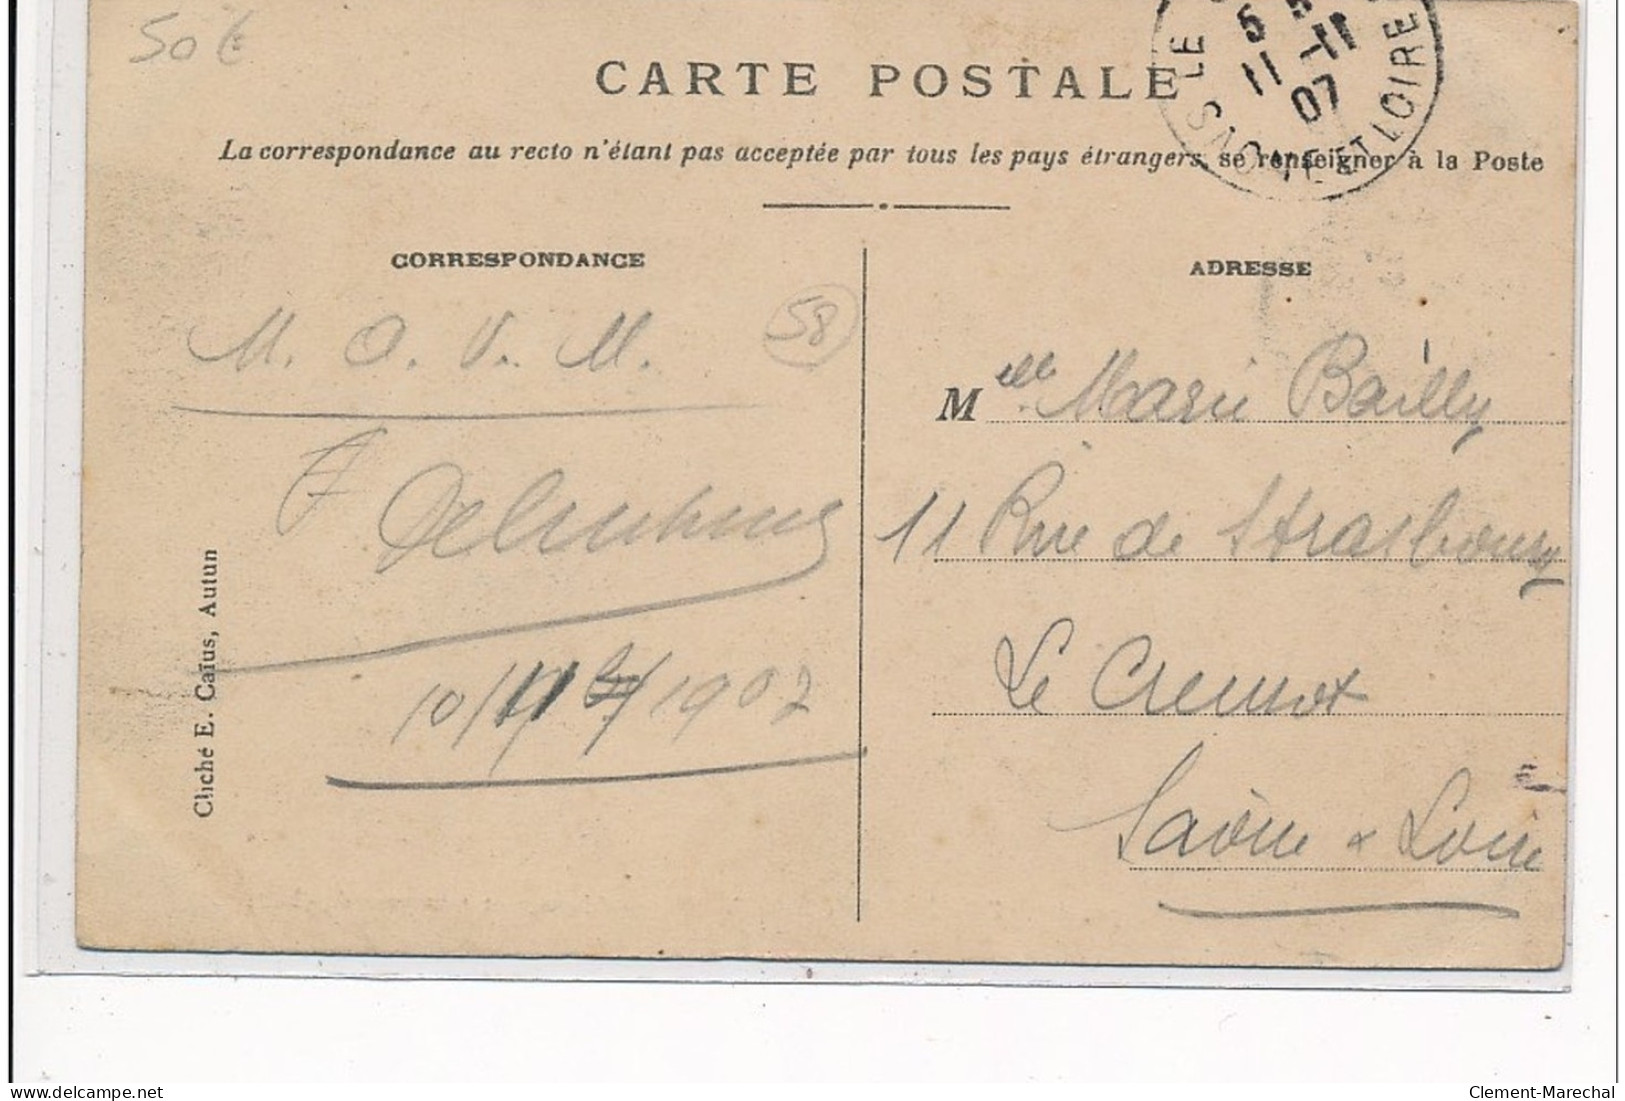 50 €
CARTE POSTALE
LE
5
11 -11
07
SAONE ET LOIRE
La correspondance au recto n'étant pas acceptée par tous les pays étrangers, se renseigner à la Poste
CORRESPONDANCE
M. O. V. M.
58
10/11/1907
Cliché E. Caïus, Autun
ADRESSE
Melle Marie Bailly
11 Rue de Strasbourg
Le Creusot
Saône & Loire
delcampe.net
Clement-Marechal